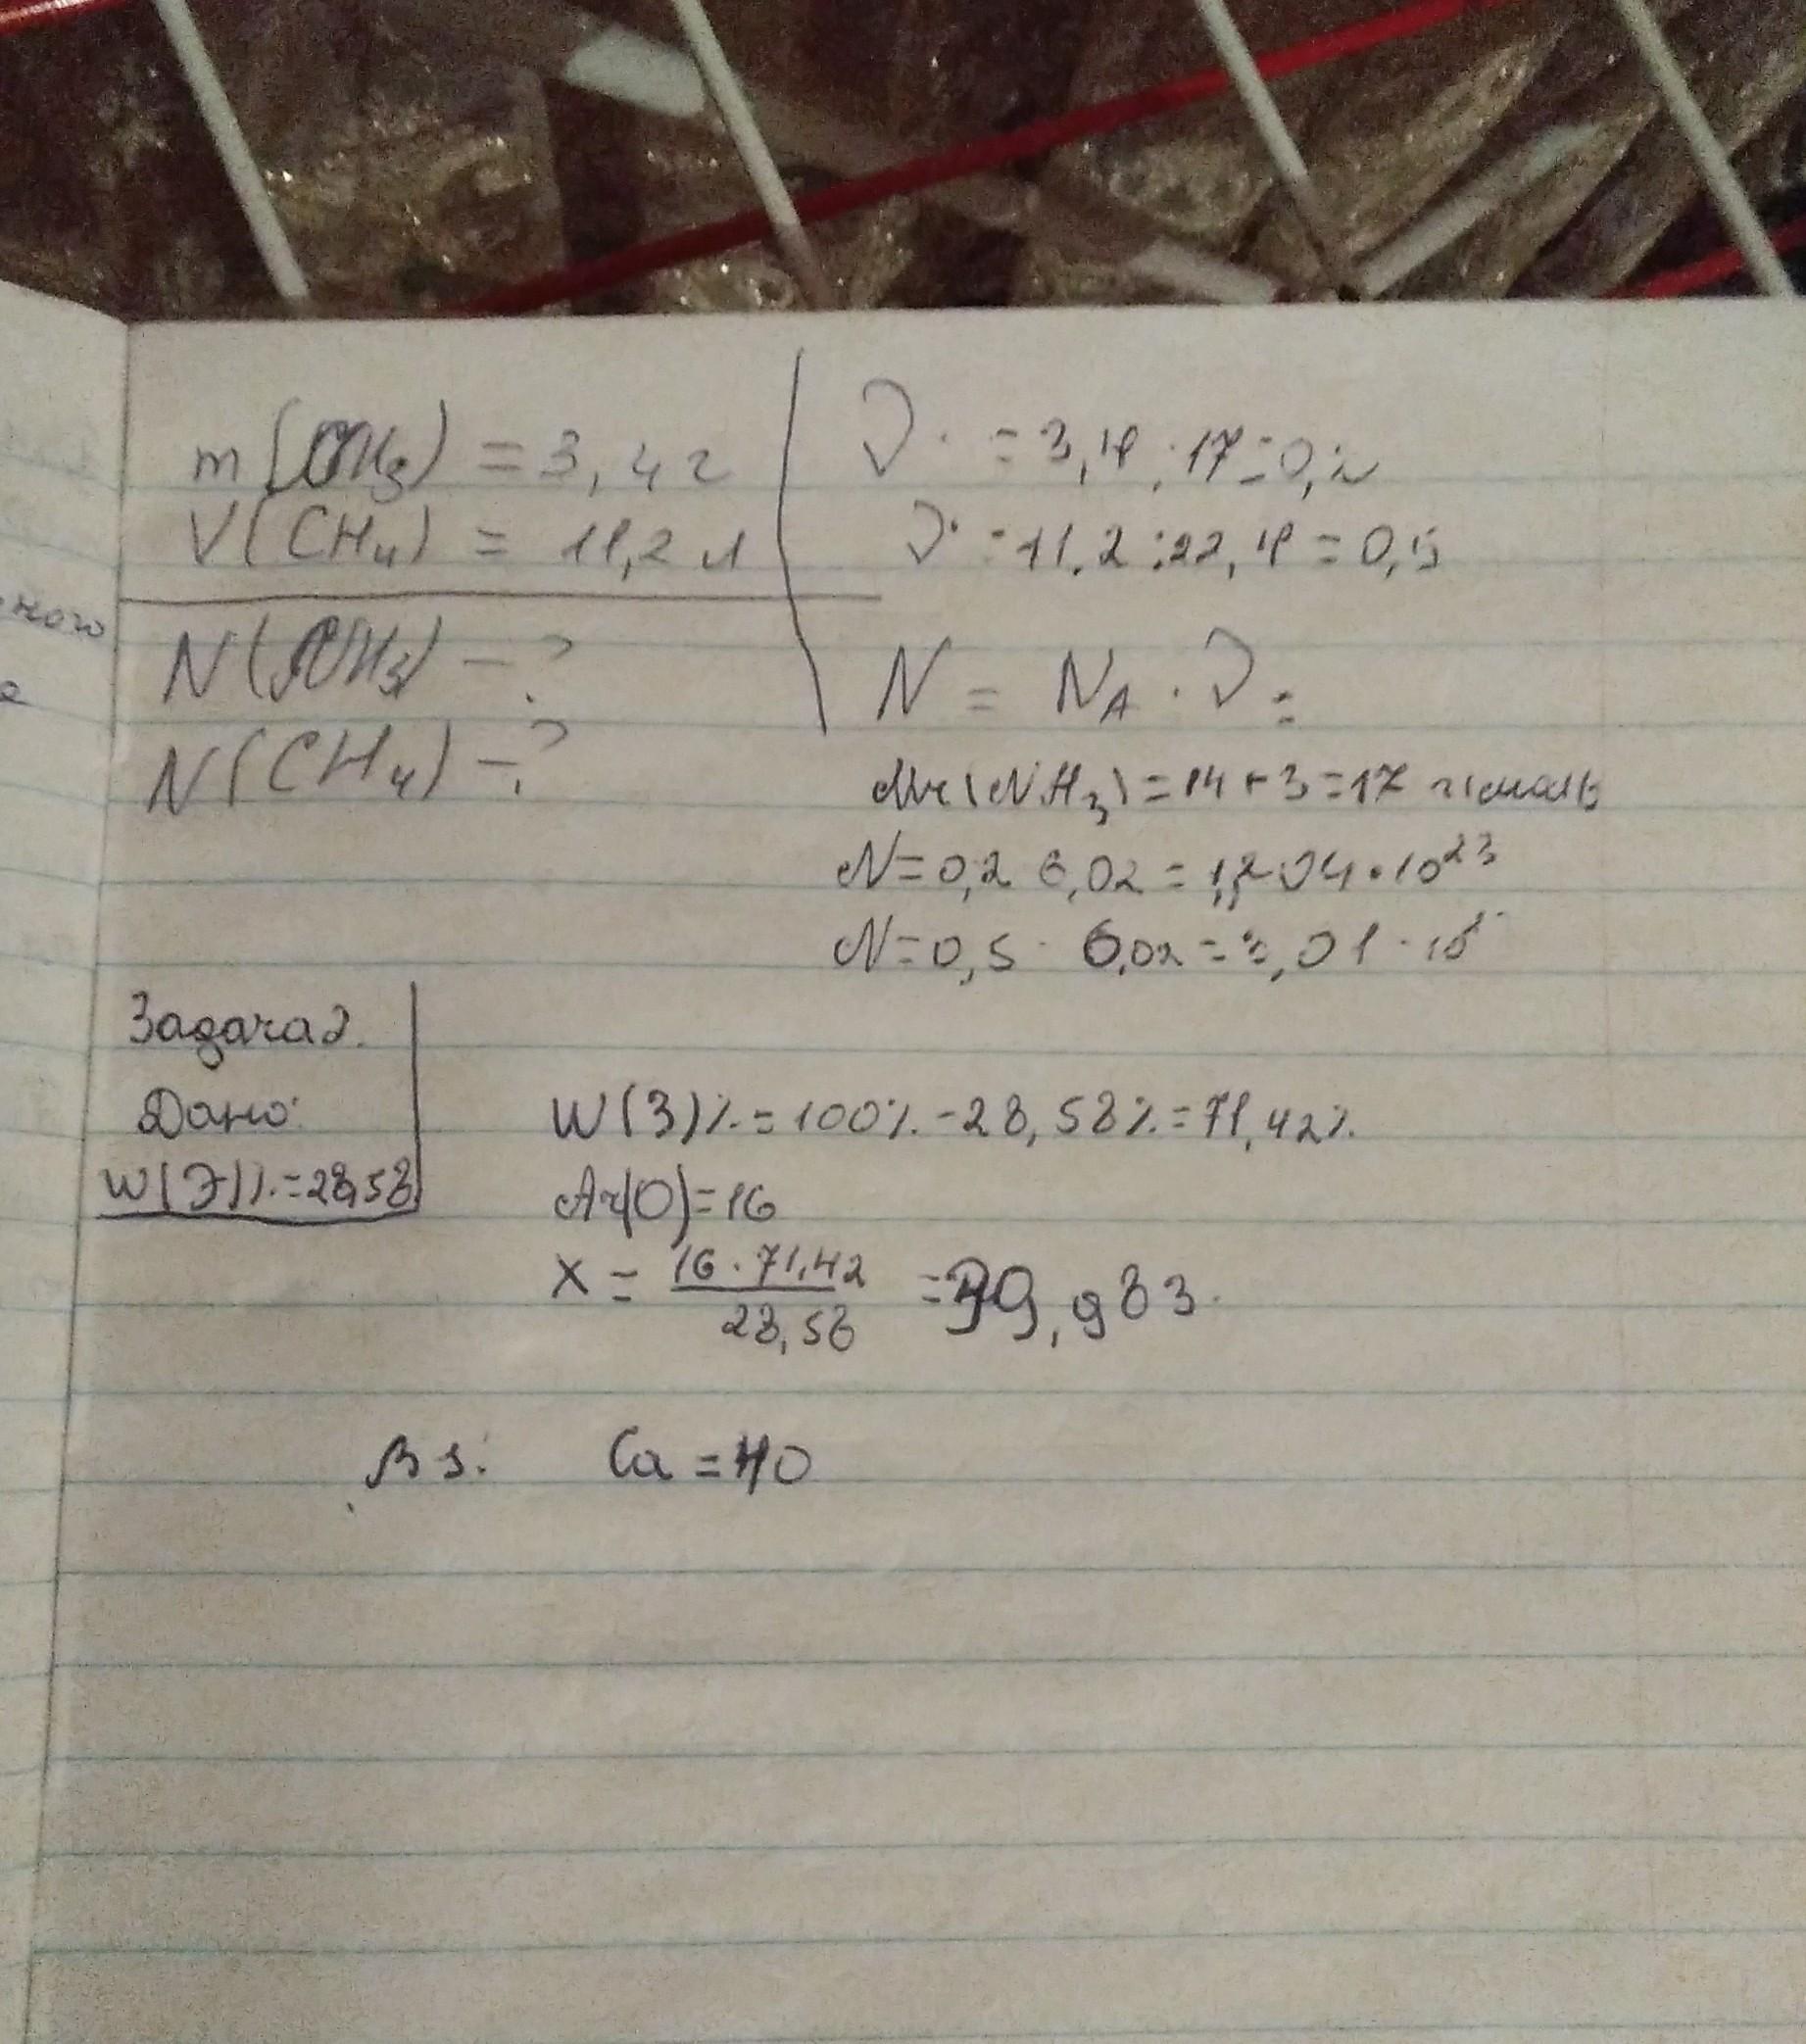 m(NH₃) = 3,4 г
V(CH₄) = 11,2 л
N(NH₃) – ?
N(CH₄) – ?
ного
е
ν = 3,4 : 17 = 0,2
ν = 11,2 : 22,4 = 0,5
N = N_A · ν =
Mr(NH₃) = 14 + 3 = 17 г/моль
N = 0,2 6,02 = 1,204 · 10²³
N = 0,5 · 6,02 = 3,01 ·
Задача 2.
Дано:
W(Э)% = 28,58
W(Э)% = 100% - 28,58% = 71,42%
Ar(O) = 16
X = 16 · 71,42 / 28,58 = 39,983
Ca = 40